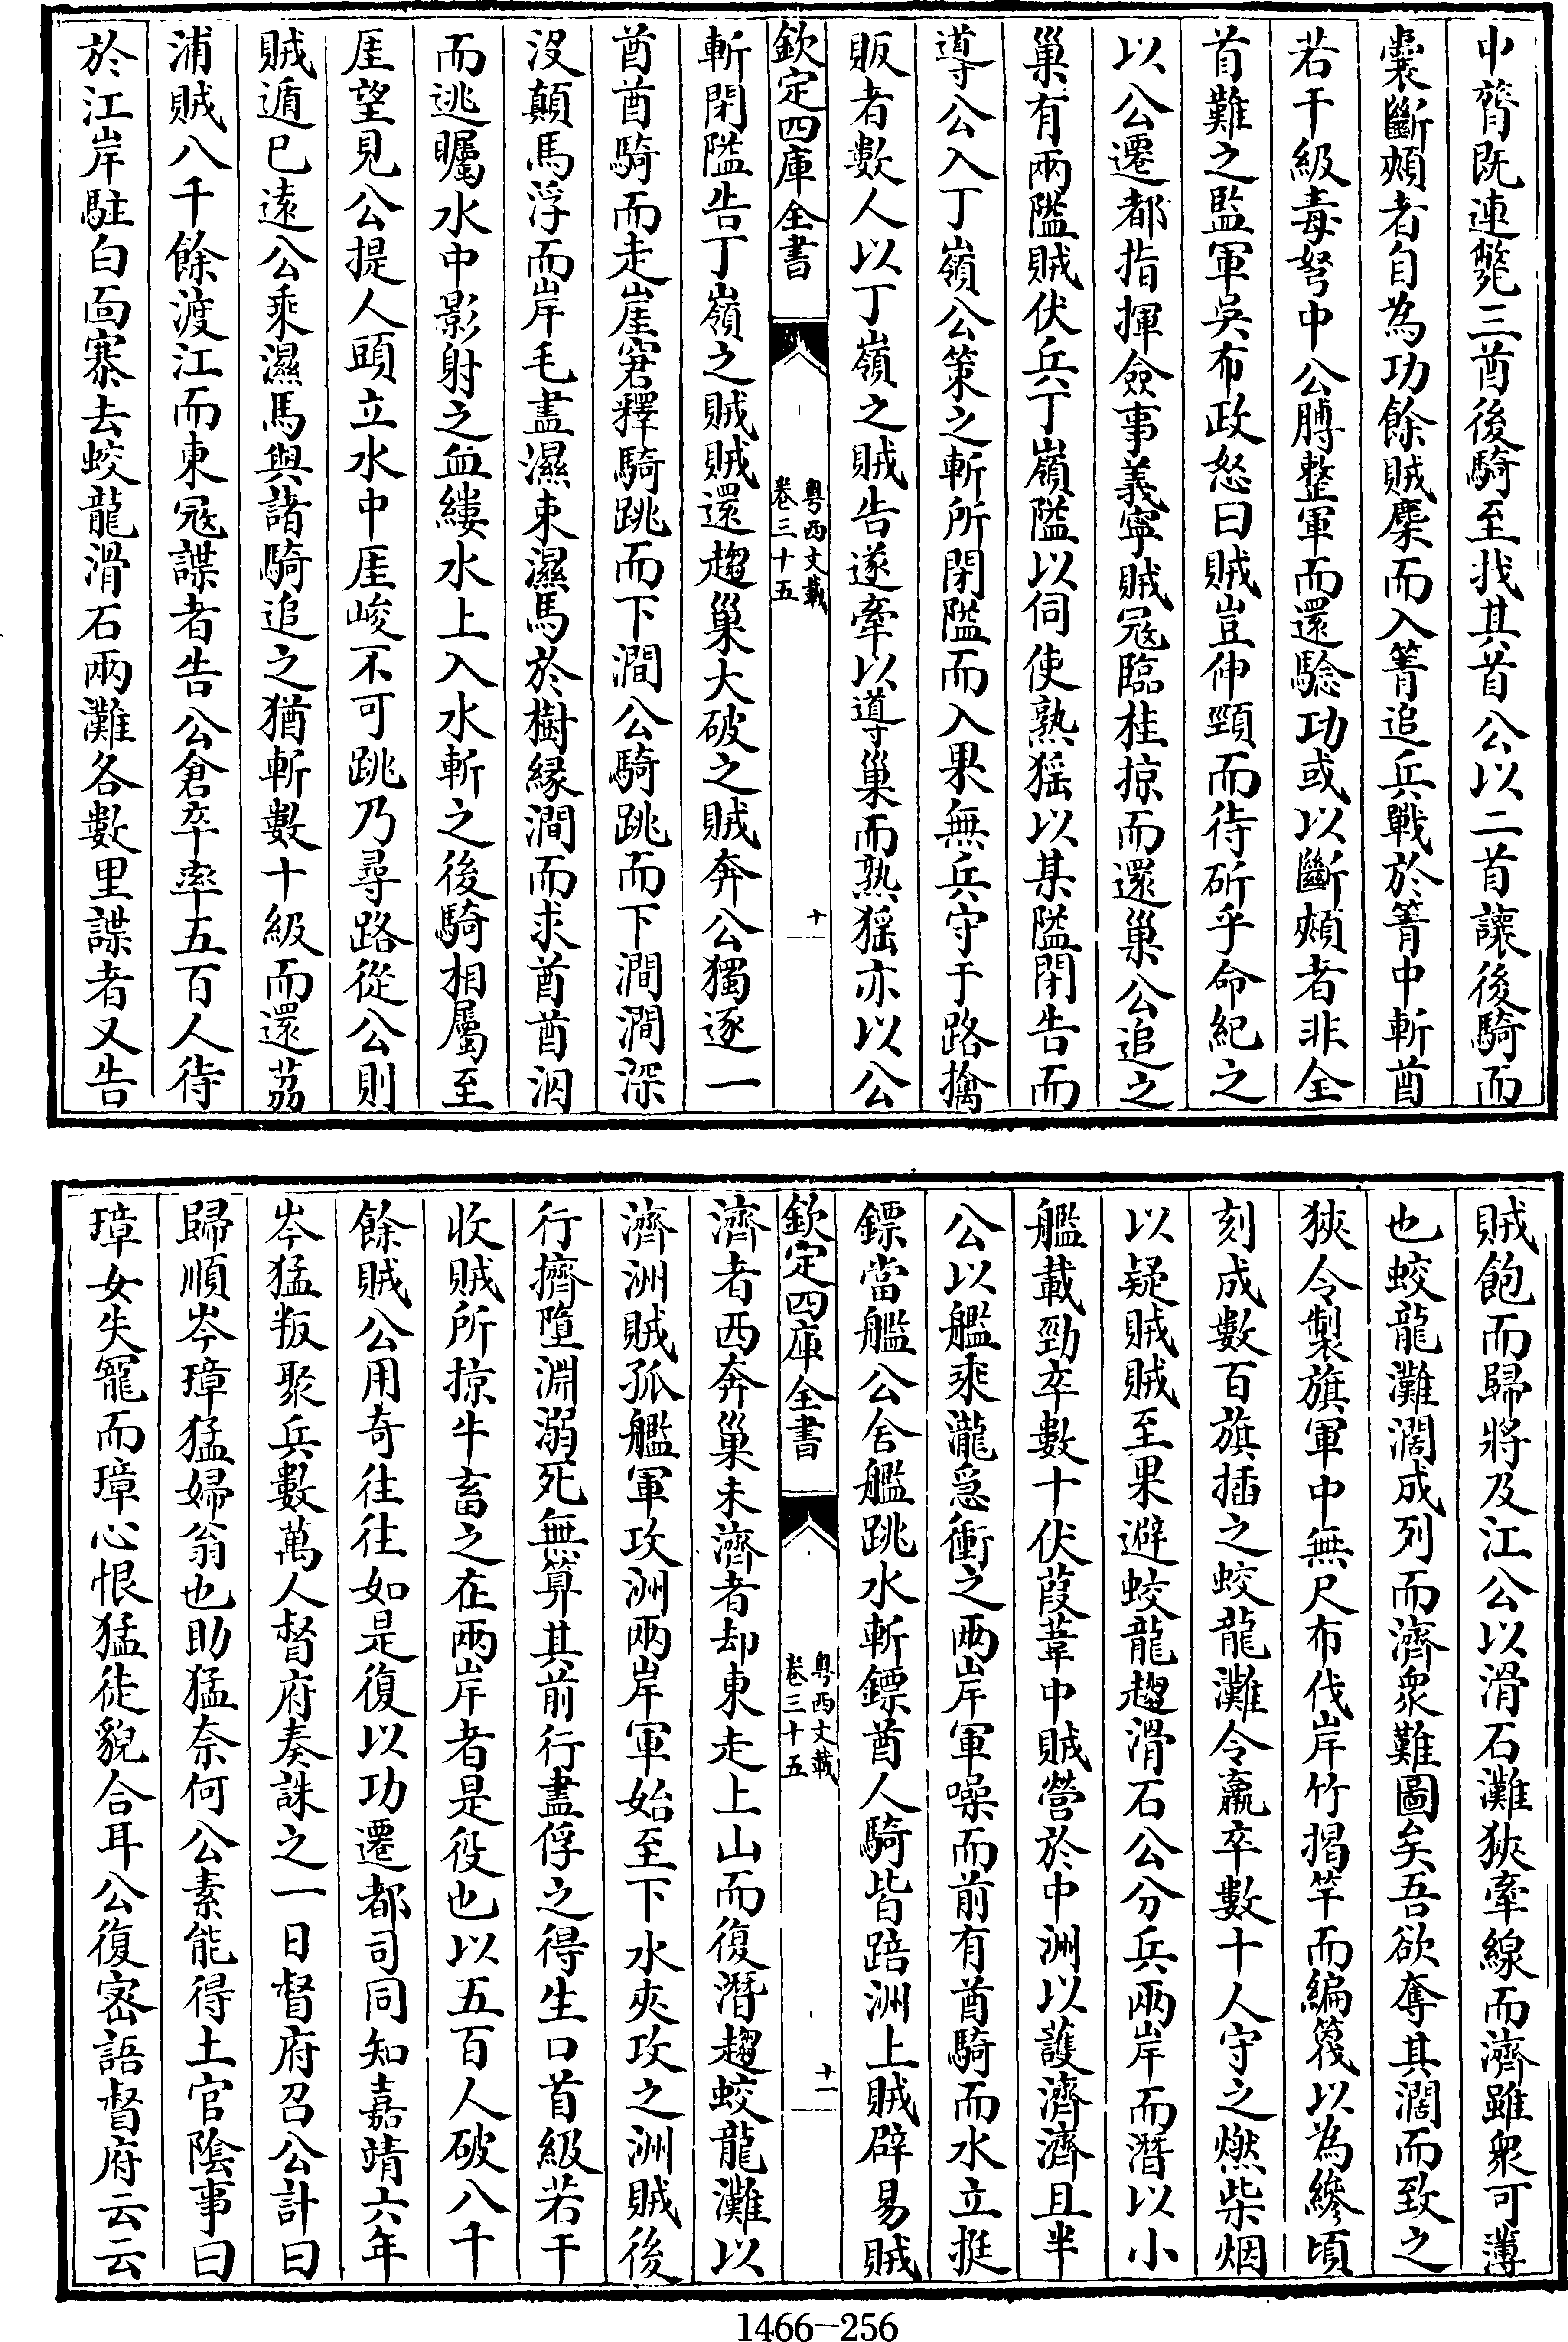 中膂既連斃三酋後騎至找其首公以二首讓後騎而
囊斷頰者自為功餘賊麇而入箐追兵戰於箐中斬酋
若干級毒弩中公膊整軍而還驗功或以斷頰者非全
首難之監軍吳布政怒曰賊豈伸頸而待斫乎命紀之
以公遷都指揮僉事義寧賊冦臨桂掠而還巢公追之
巢有兩隘賊伏兵丁嶺隘以伺使熟猺以某隘閉告而
導公入丁嶺公策之斬所閉隘而入果無兵守于路擒
販者數人以丁嶺之賊告遂牽以導巢而熟猺亦以公
欽定四庫全書
粤西文載
卷三十五
十
斬閉隘告丁嶺之賊賊還趨巢大破之賊奔公獨逐一
酋酋騎而走崖窘釋騎跳而下澗公騎跳而下澗澗深
沒顛馬浮而岸毛盡濕束濕馬於樹緣澗而求酋酋泅
而逃矚水中影射之血縷水上入水斬之後騎相屬至
厓望見公提人頭立水中厓峻不可跳乃尋路從公則
賊遁巳遠公乘濕馬與諸騎追之猶斬數十級而還茘
浦賊八千餘渡江而東冦諜者告公倉卒率五百人待
於江岸駐白面寨去蛟龍滑石兩灘各數里諜者又告
賊飽而歸將及江公以滑石灘狹牽線而濟雖衆可薄
也蛟龍灘濶成列而濟衆難圖矣吾欲奪其濶而致之
狹令製旗軍中無尺布伐岸竹揭竿而編篾以為縿頃
刻成數百旗插之蛟龍灘令羸卒數十人守之燃柴烟
以疑賊賊至果避蛟龍趨滑石公分兵兩岸而潛以小
艦載勁卒數十伏葭葦中賊營於中洲以護濟濟且半
公以艦乘瀧急衝之兩岸軍噪而前有酋騎而水立挺
鏢當艦公舍艦跳水斬鏢酋人騎皆踣洲上賊辟易賊
欽定四庫全書
粤西文載
卷三十五
十一
濟者西奔巢未濟者却東走上山而復潛趨蛟龍灘以
濟洲賊孤艦軍攻洲兩岸軍始至下水夾攻之洲賊後
行擠墮淵溺死無算其前行盡俘之得生口首級若干
收賊所掠牛畜之在兩岸者是役也以五百人破八千
餘賊公用奇往往如是復以功遷都司同知嘉靖六年
岑猛叛聚兵數萬人督府奏誅之一日督府召公計曰
歸順岑璋猛婦翁也助猛奈何公素能得土官陰事曰
璋女失寵而璋心恨猛徒貌合耳公復密語督府云云
1466-256